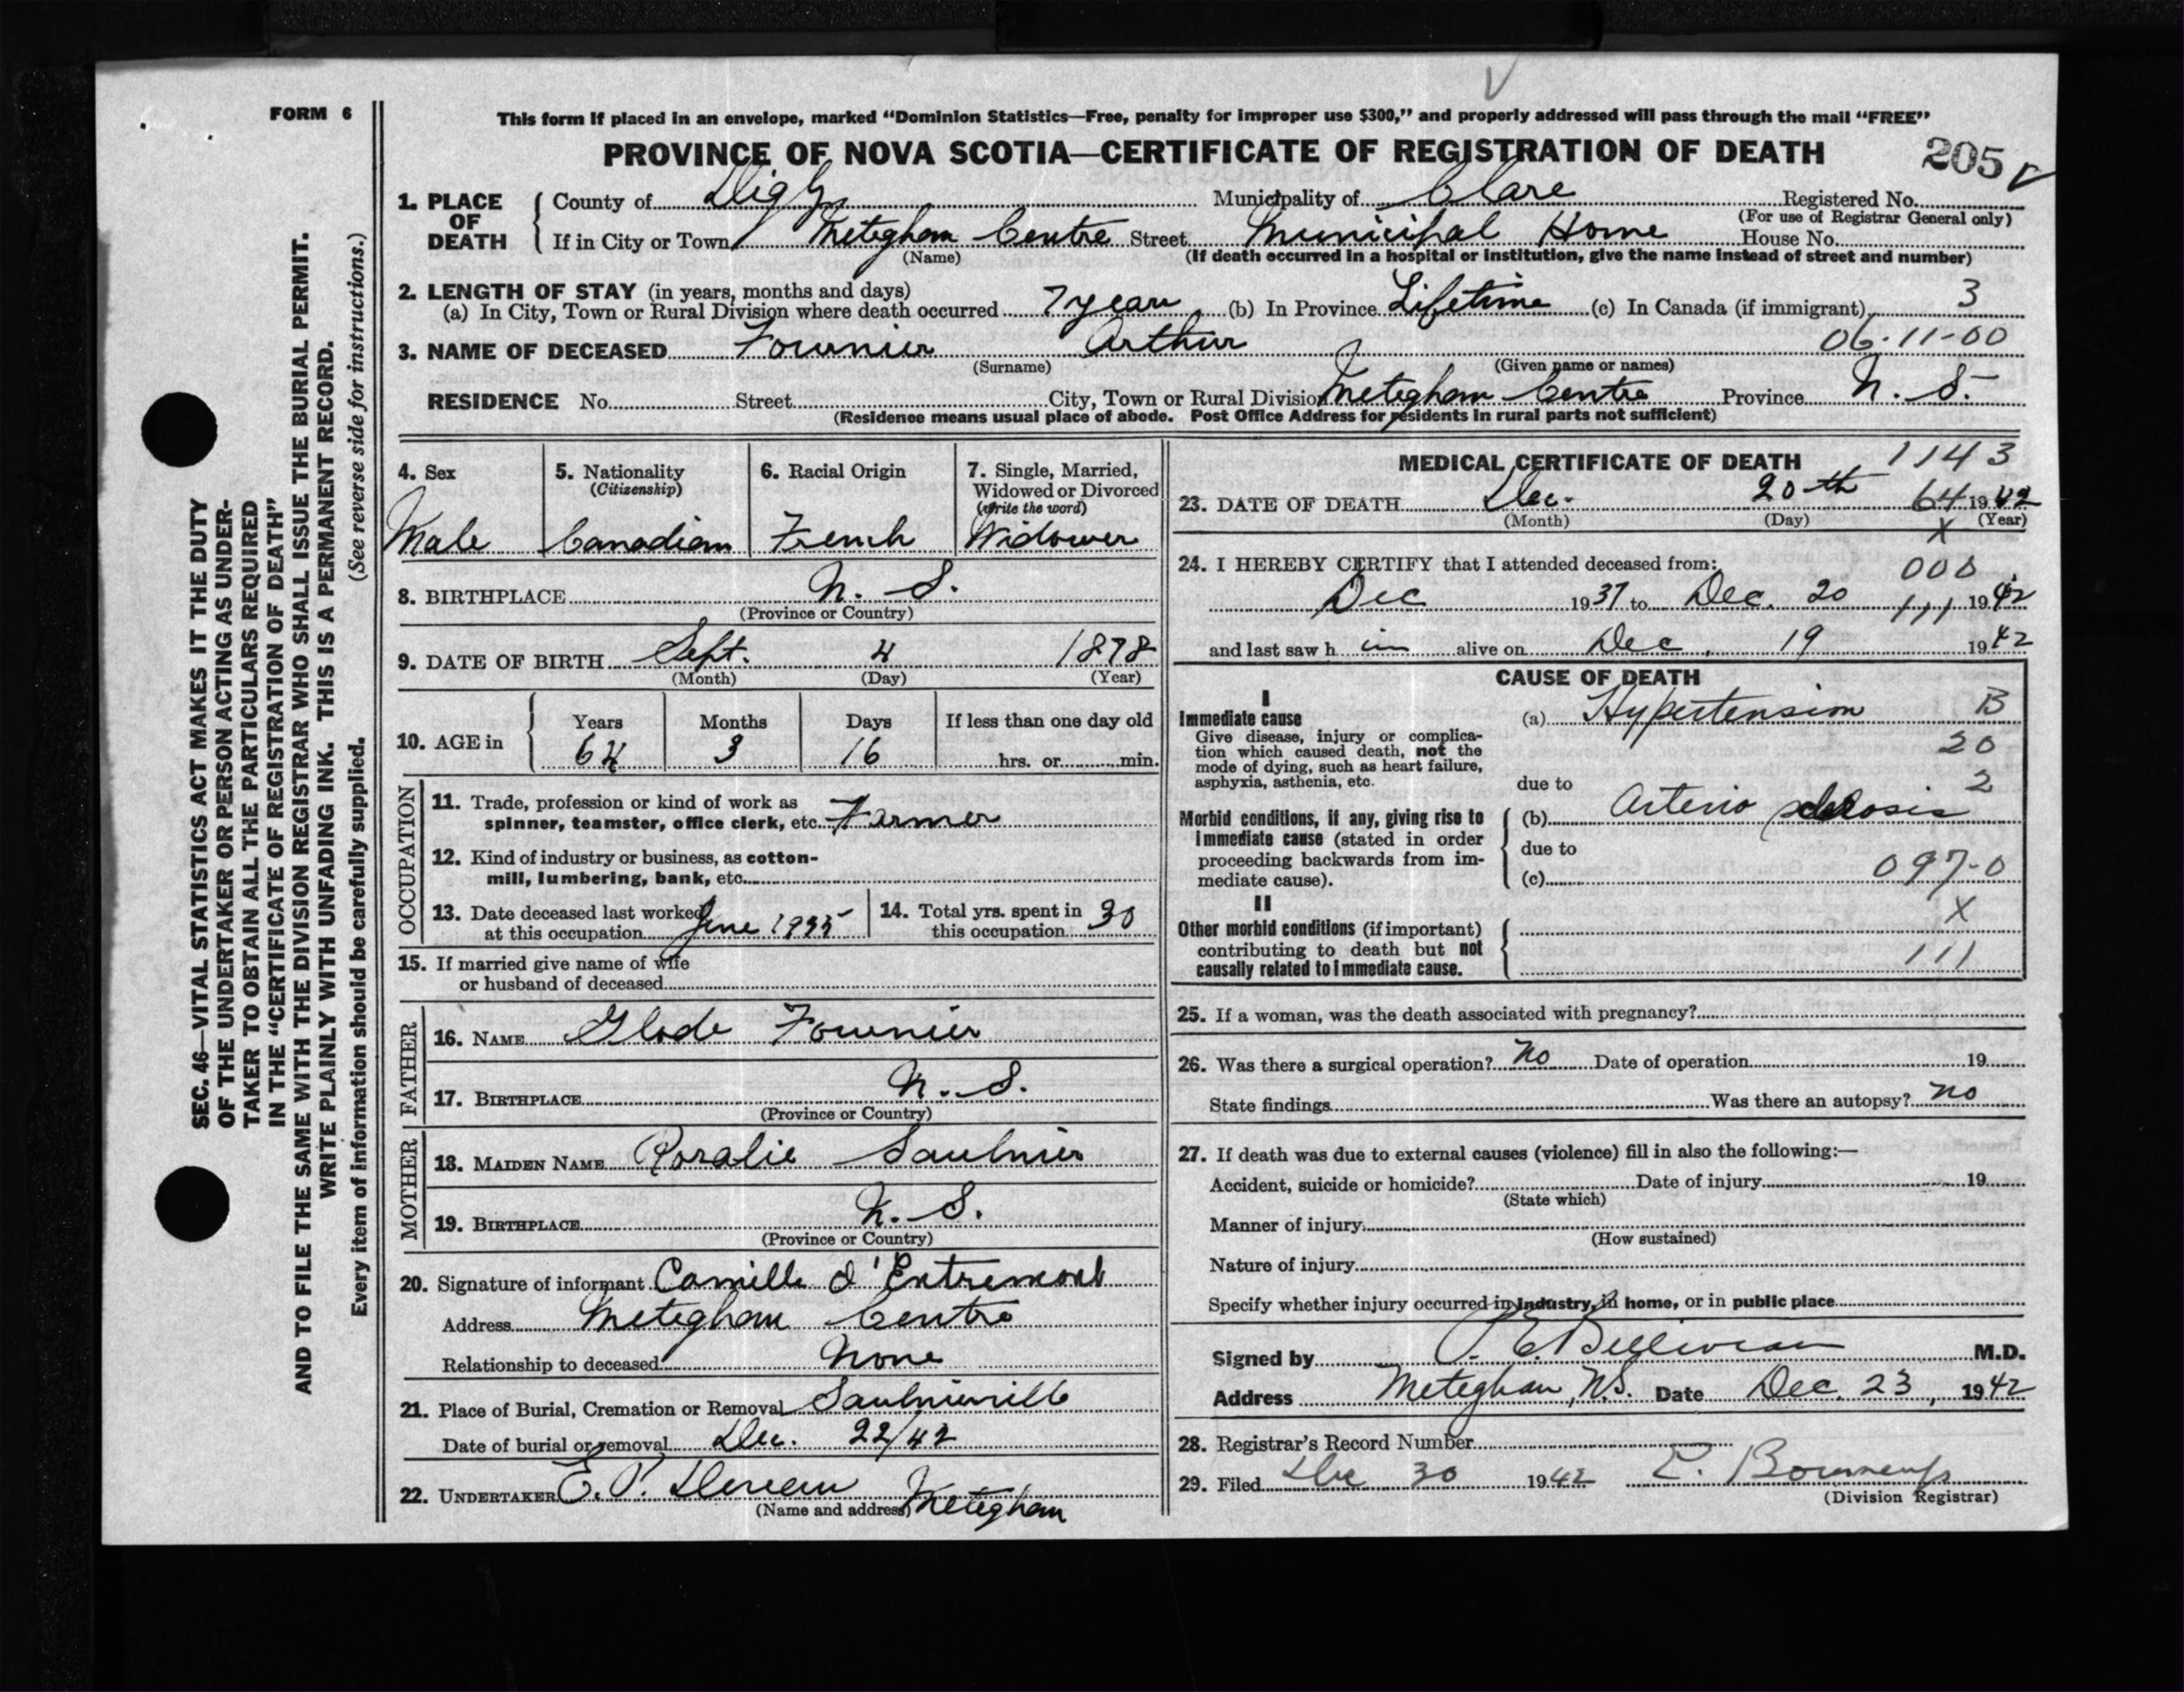 FORM 6
This form if placed in an envelope, marked “Dominion Statistics—Free, penalty for improper use $300,” and properly addressed will pass through the mail “FREE”
PROVINCE OF NOVA SCOTIA—CERTIFICATE OF REGISTRATION OF DEATH
205
1. PLACE OF DEATH
County of Digby Municipality of Clare Registered No.
(For use of Registrar General only)
If in City or Town Meteghan Centre Street Municipal Home House No.
(Name) (If death occurred in a hospital or institution, give the name instead of street and number)
2. LENGTH OF STAY (in years, months and days)
(a) In City, Town or Rural Division where death occurred 7 years (b) In Province Lifetime (c) In Canada (if immigrant) 3
3. NAME OF DECEASED Fournier Arthur 06-11-00
(Surname) (Given name or names)
RESIDENCE No. Street City, Town or Rural Division Meteghan Centre Province N. S.
(Residence means usual place of abode. Post Office Address for residents in rural parts not sufficient)
4. Sex
Male
5. Nationality
(Citizenship)
Canadian
6. Racial Origin
French
7. Single, Married,
Widowed or Divorced
(write the word)
Widower
8. BIRTHPLACE N. S.
(Province or Country)
9. DATE OF BIRTH Sept. 4 1878
(Month) (Day) (Year)
10. AGE in
Years Months Days If less than one day old
64 3 16 hrs. or min.
OCCUPATION
11. Trade, profession or kind of work as
spinner, teamster, office clerk, etc. Farmer
12. Kind of industry or business, as cotton-
mill, lumbering, bank, etc.
13. Date deceased last worked
at this occupation June 1935
14. Total yrs. spent in
this occupation 30
15. If married give name of wife
or husband of deceased
FATHER
16. NAME Glode Fournier
17. BIRTHPLACE N. S.
(Province or Country)
MOTHER
18. MAIDEN NAME Rosalie Saulnier
19. BIRTHPLACE N. S.
(Province or Country)
20. Signature of informant Camille d'Entremont
Address Meteghan Centre
Relationship to deceased None
21. Place of Burial, Cremation or Removal Saulnierville
Date of burial or removal Dec. 22/42
22. UNDERTAKER E. P. Meteghan
(Name and address)
MEDICAL CERTIFICATE OF DEATH 1143
23. DATE OF DEATH Dec. 20th 64 1942
(Month) (Day) (Year)
X
24. I HEREBY CERTIFY that I attended deceased from:
000
Dec 1937 to Dec. 20 1942
111
and last saw h im alive on Dec. 19 1942
CAUSE OF DEATH
I
Immediate cause
Give disease, injury or complica-
tion which caused death, not the
mode of dying, such as heart failure,
asphyxia, asthenia, etc.
(a) Hypertension B
20
due to 2
Morbid conditions, if any, giving rise to
immediate cause (stated in order
proceeding backwards from im-
mediate cause).
(b) Arterio sclerosis
due to
(c) 097-0
II X
Other morbid conditions (if important)
contributing to death but not
causally related to immediate cause.
111
25. If a woman, was the death associated with pregnancy?
26. Was there a surgical operation? No Date of operation 19
State findings Was there an autopsy? No
27. If death was due to external causes (violence) fill in also the following:—
Accident, suicide or homicide? Date of injury 19
(State which)
Manner of injury
(How sustained)
Nature of injury
Specify whether injury occurred in industry, in home, or in public place
Signed by P. E. Belliveau M.D.
Address Meteghan, N.S. Date Dec. 23, 1942
28. Registrar's Record Number
29. Filed Dec 30 1942
(Division Registrar)
SEC. 46—VITAL STATISTICS ACT MAKES IT THE DUTY
OF THE UNDERTAKER OR PERSON ACTING AS UNDER-
TAKER TO OBTAIN ALL THE PARTICULARS REQUIRED
IN THE “CERTIFICATE OF REGISTRATION OF DEATH”
AND TO FILE THE SAME WITH THE DIVISION REGISTRAR WHO SHALL ISSUE THE BURIAL PERMIT.
WRITE PLAINLY WITH UNFADING INK. THIS IS A PERMANENT RECORD.
Every item of information should be carefully supplied. (See reverse side for instructions.)